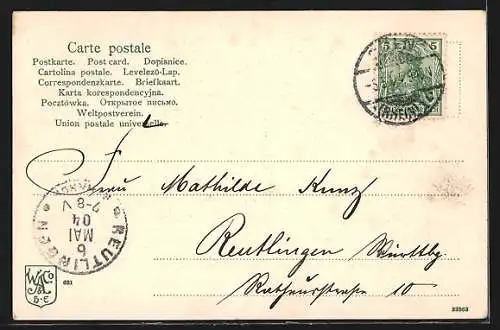 Carte postale
Postkarte. Post card. Dopisnice.
Cartolina postale. Levelező-Lap.
Correspondenzkarte. Briefkaart.
Karta korespondencyjna.
Pocztówka. Открытое письмо.
Weltpostverein.
Union postale universelle.
5 5
(RHEIN)
Frau Mathilde Kunz
Reutlingen Württbg
Rathausstrasse 10
REUTLINGEN
6
MAI
04
7-8 V
W Co
D-E
691
22363